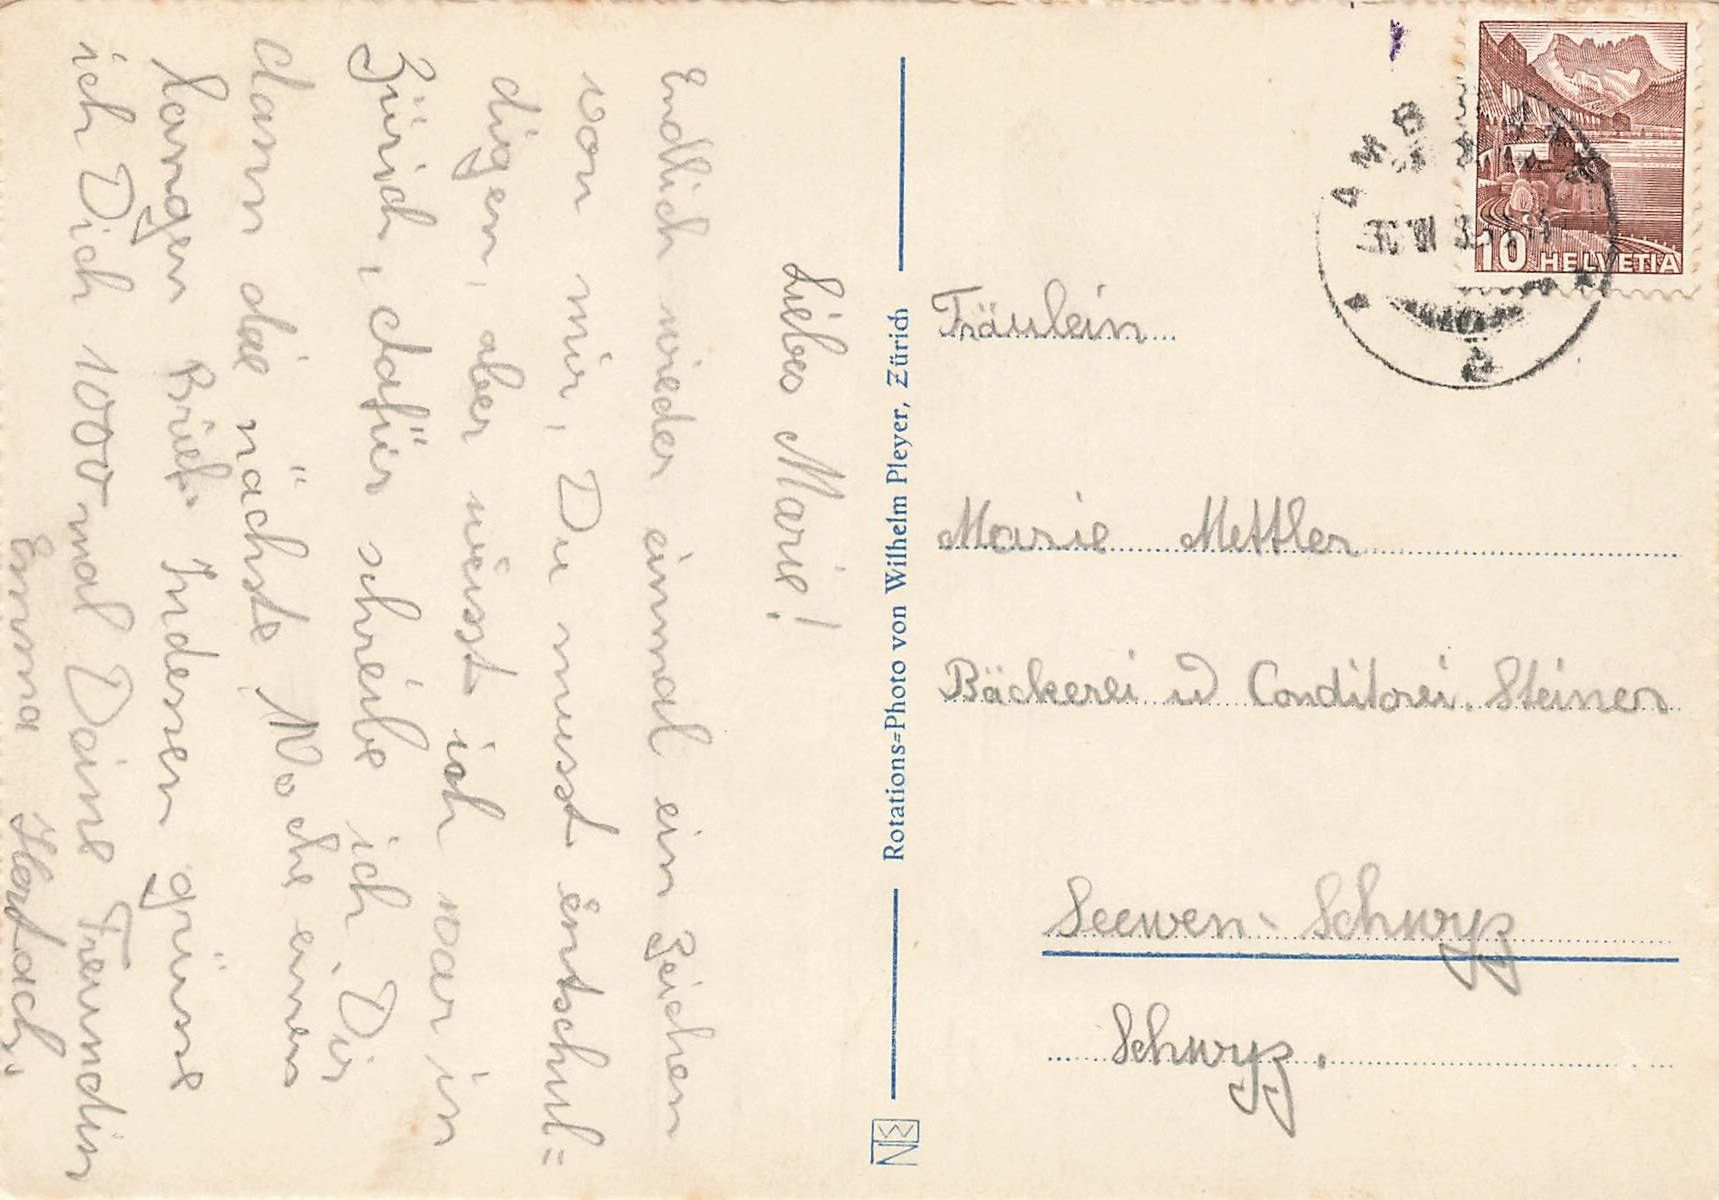 Liebes Marie!
Endlich wieder einmal ein Zeichen
von mir, Du musst entschul=
digen, aber weisst ich war in
Zürich, dafür schreibe ich Dir
dann die nächste Woche einen
langen Brief. Indessen grüsse
ich Dich 1000 mal Deine Freundin
Emma
Rotations=Photo von Wilhelm Pleyer, Zürich
10 HELVETIA
Fräulein
Marie Mettler
Bäckerei u Conditorei. Steiner
Seewen-Schwyz
Schwyz.